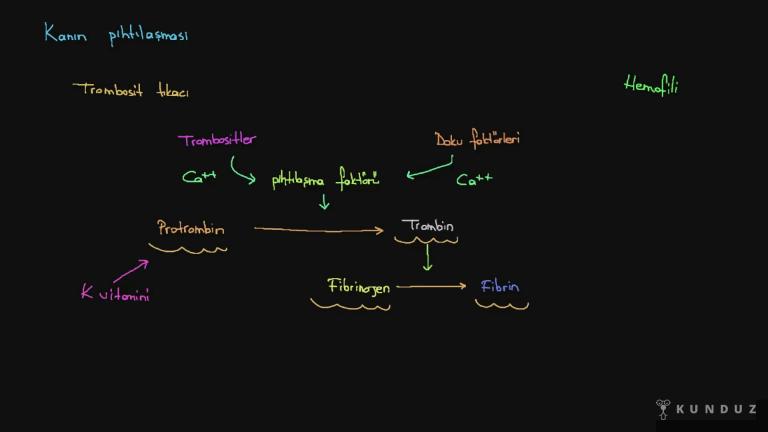 Kanın pıhtılaşması
Trombosit tıkacı
Hemofili
Trombositler
Doku faktörleri
Ca++
pıhtılaşma faktörü
Ca++
Protrombin
Trombin
K vitamini
Fibrinojen
Fibrin
KUNDUZ